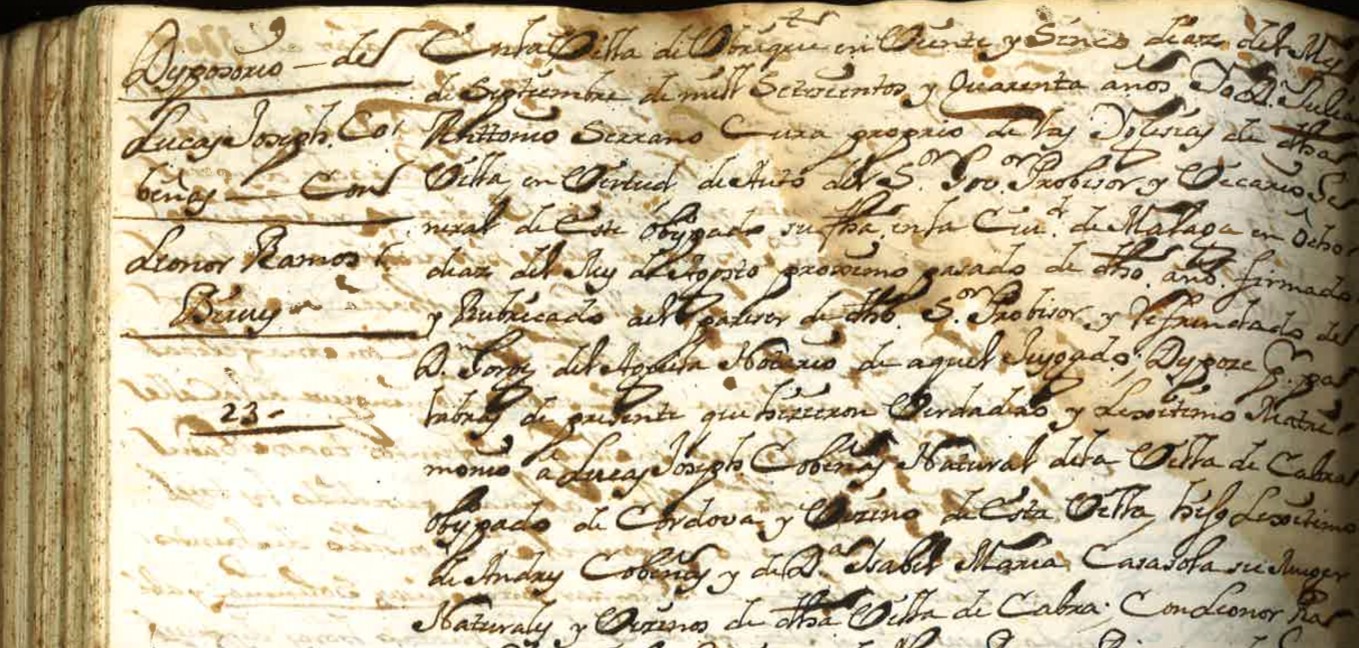 Dyposorio - del
Lucas Joseph. Co-
beñas - Con
Leonor Ramos
23-
En la Villa de Ubrique en Veinte y Sinco dias del Mes
de Septiembre de mill Setecientos y Quarenta años Yo D. Julia
Anttonio Serrano Cura proprio de las Yglesias de dha
Villa en Virtud de Auto del S.or Prov.or Probisor y Vicario Ge
neral de Este obispado su fha en la Ciu.d de Malaga en Ocho
dias del Mes de Agosto proximo pasado de dho año firmado
y Rubricado al pareser de dho S.or Probisor y Refrendado del
D. Jorge del Aguila Notario de aquel Jusgado: Dypoze p. pa
labras de presente que hizieron Verdadero y Lexitimo Matri-
monio a Lucas Joseph Cobeñas Natural de la Villa de Cabra
obispado de Cordova y Vezino de Esta Villa hijo Lexitimo
de Andres Cobeñas y de D.a Isabel Maria Casasola su Muger
Naturales y Vezinos de dha Villa de Cabra; Con Leonor Ra